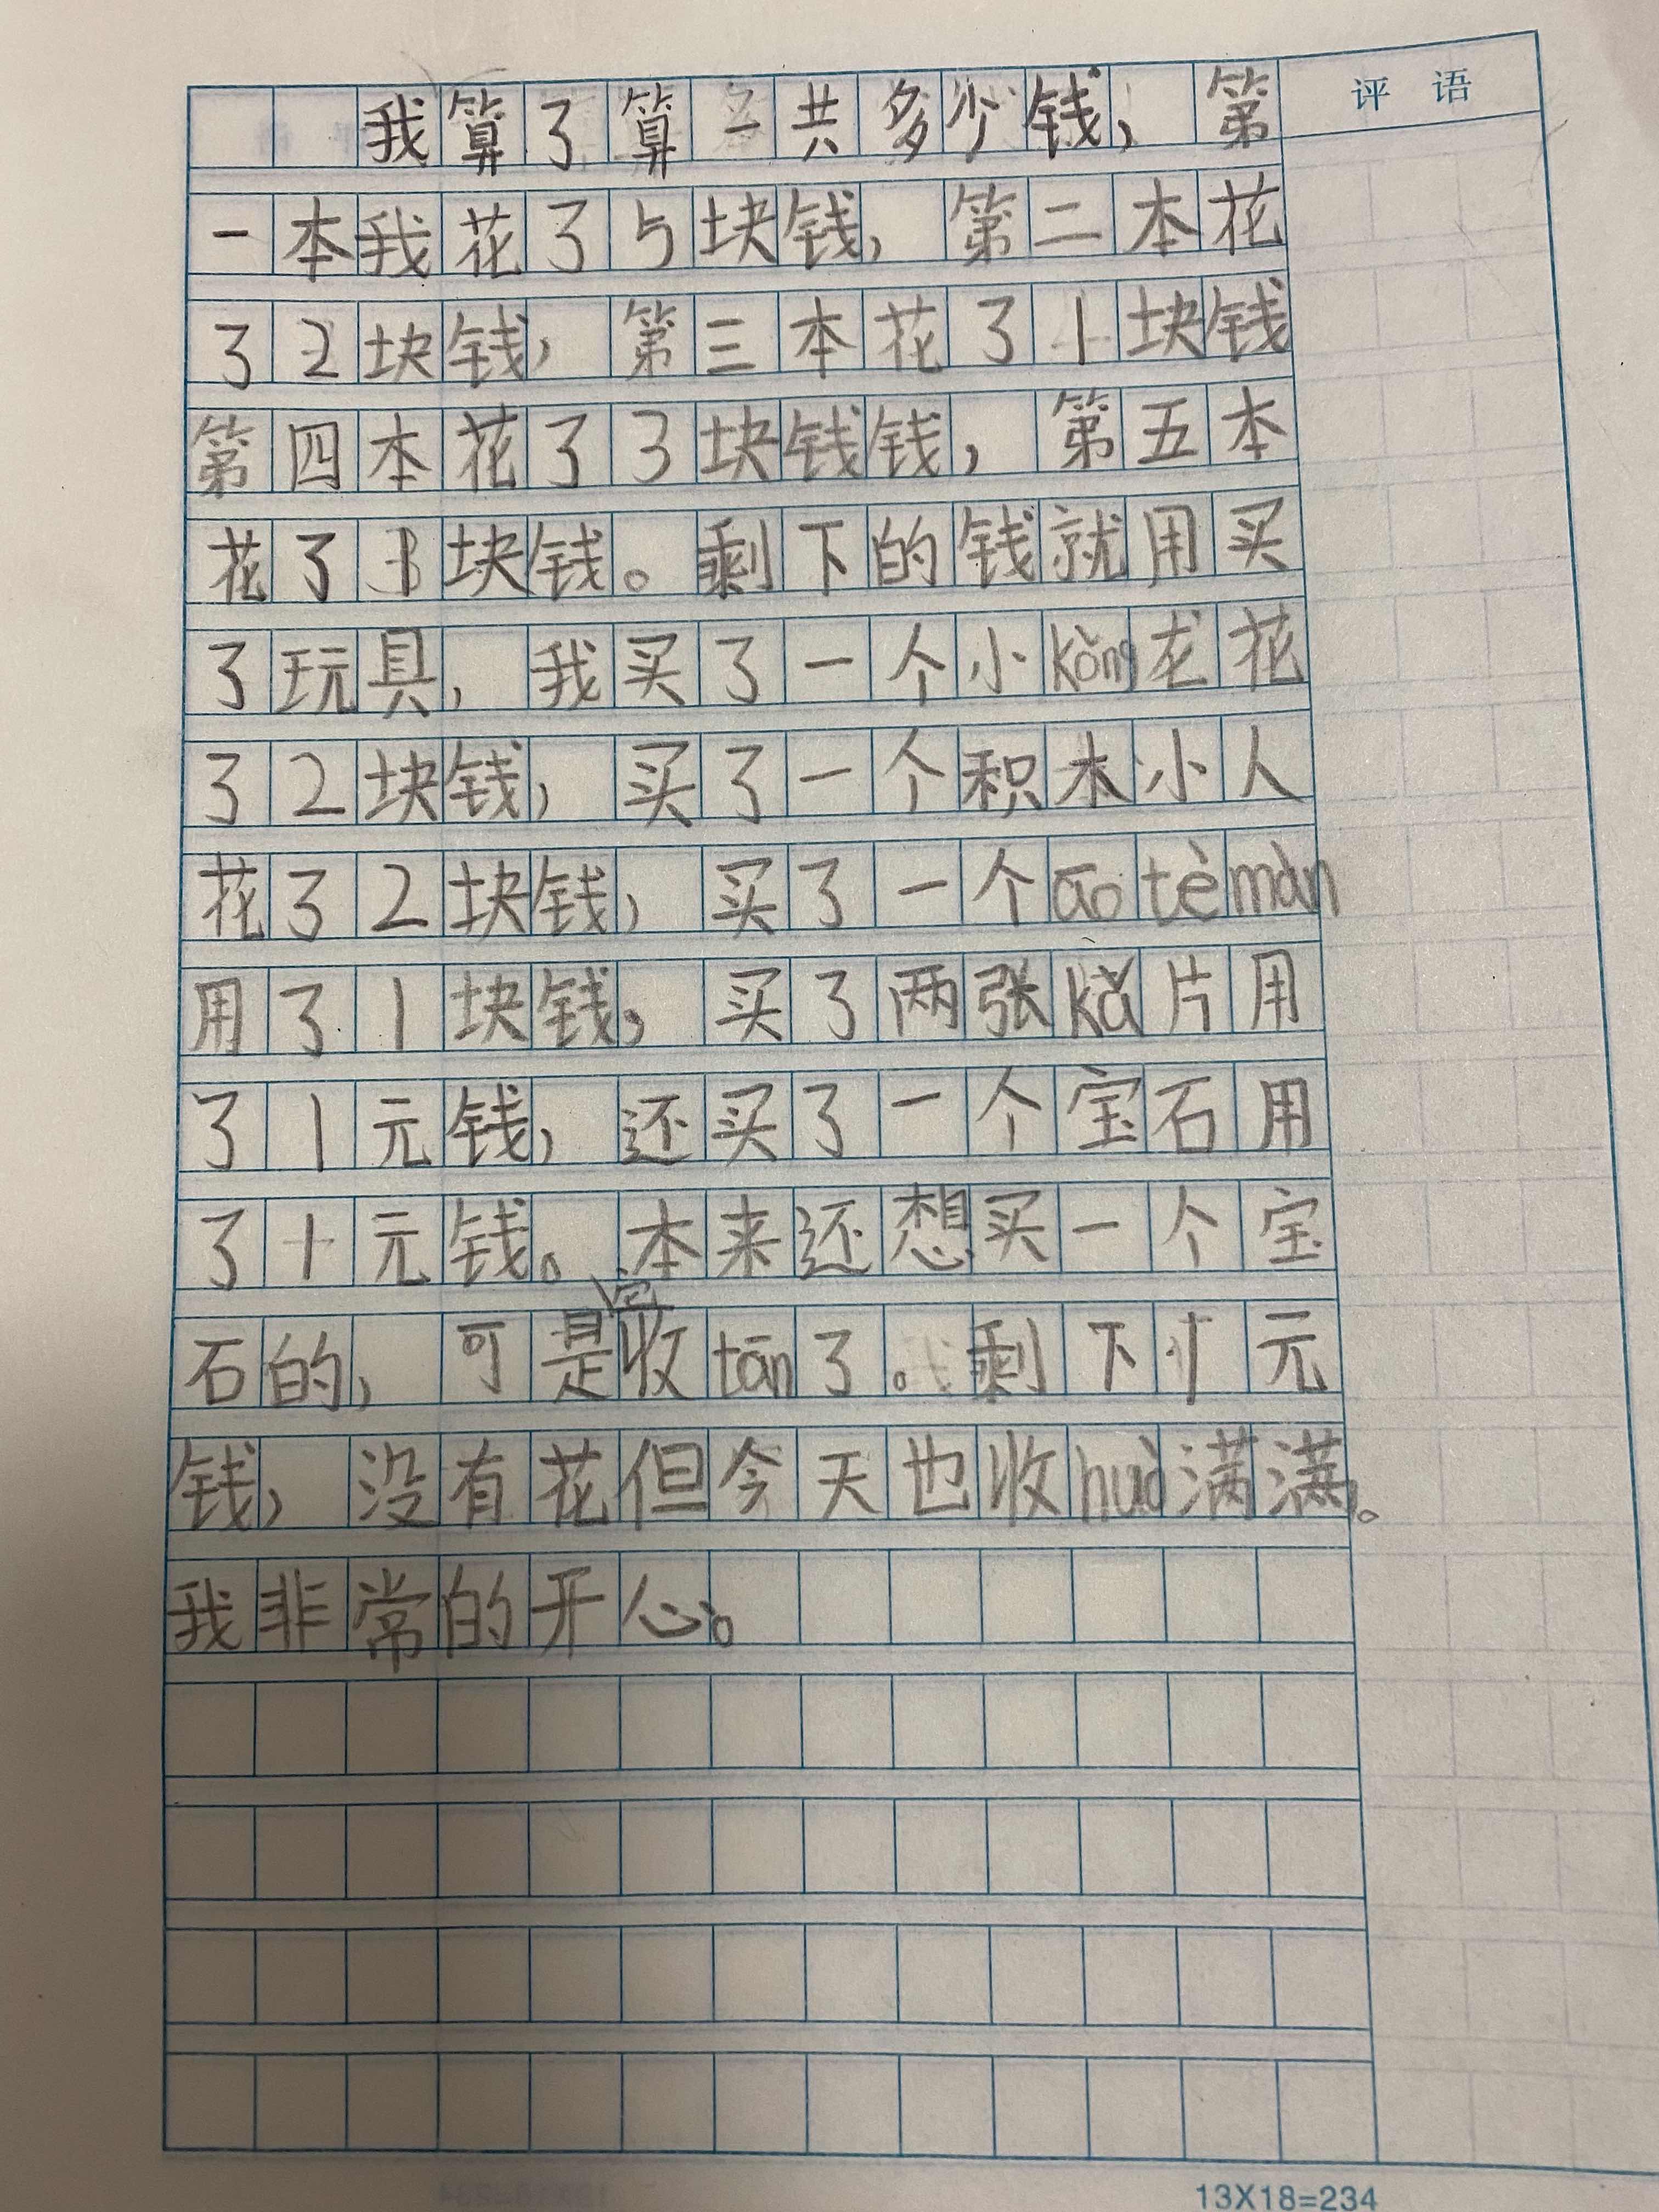 评 语
我算了算一共多少钱，第
一本我花了5块钱，第二本花
了2块钱，第三本花了1块钱
第四本花了3块钱钱，第五本
花了 块钱。剩下的钱就用买
了玩具，我买了一个小kǒng龙花
了2块钱，买了一个积木小人
花了2块钱，买了一个āo tè màn
用了1块钱，买了两张kǎ片用
了1元钱，还买了一个宝石用
了1元钱。本来还想买一个宝
石的，可是它收tān了。剩下1元
钱，没有花但今天也收huò满满。
我非常的开心。
13X18=234